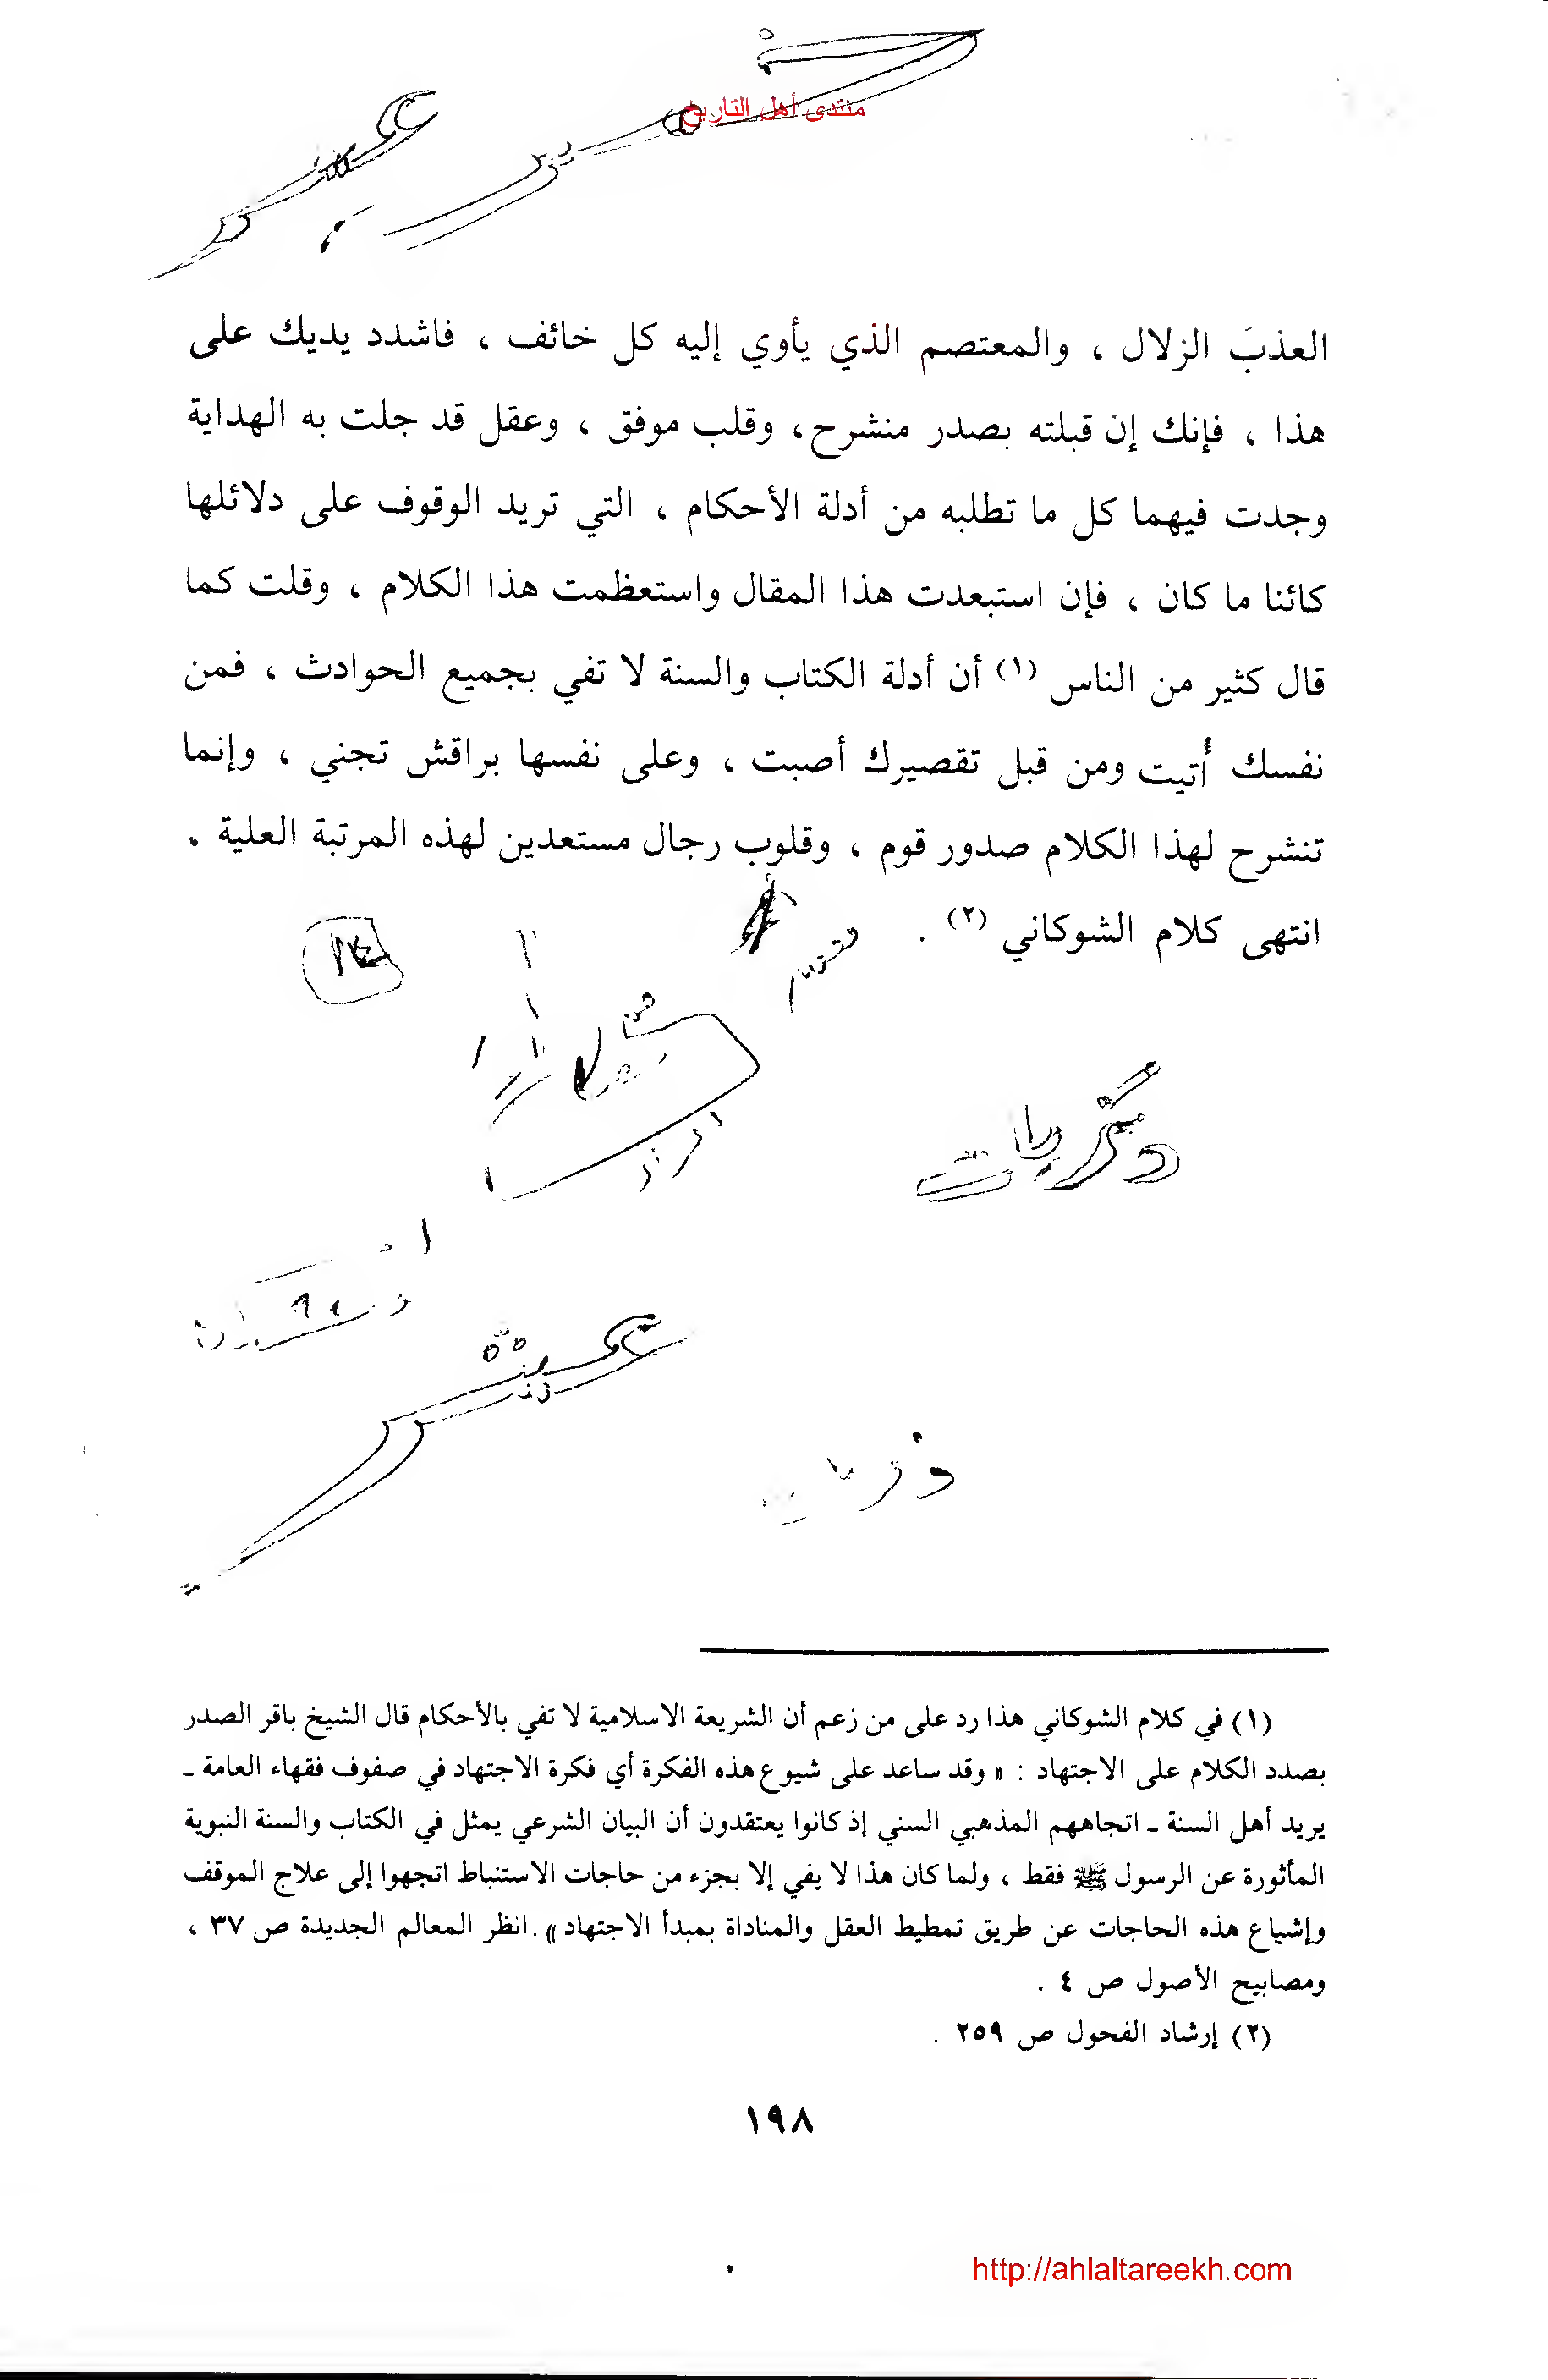 منتدى أهل التاريخ
العذبَ الزلال ، والمعتصم الذي يأوي إليه كل خائف ، فاشدد يديك على
هذا ، فإنك إن قبلته بصدر منشرح، وقلب موفق ، وعقل قد جلت به الهداية
وجدت فيهما كل ما تطلبه من أدلة الأحكام ، التي تريد الوقوف على دلائلها
كائنا ما كان ، فإن استبعدت هذا المقال واستعظمت هذا الكلام ، وقلت كما
قال كثير من الناس (١) أن أدلة الكتاب والسنة لا تفي بجميع الحوادث ، فمن
نفسك أُتيت ومن قبل تقصيرك أصبت ، وعلى نفسها براقش تجني ، وإنما
تنشرح لهذا الكلام صدور قوم ، وقلوب رجال مستعدين لهذه المرتبة العلية .
انتهى كلام الشوكاني (٢) .
(١) في كلام الشوكاني هذا رد على من زعم أن الشريعة الاسلامية لا تفي بالأحكام قال الشيخ باقر الصدر
بصدد الكلام على الاجتهاد : « وقد ساعد على شيوع هذه الفكرة أي فكرة الاجتهاد في صفوف فقهاء العامة ـ
يريد أهل السنة ـ اتجاههم المذهبي السني إذ كانوا يعتقدون أن البيان الشرعي يمثل في الكتاب والسنة النبوية
المأثورة عن الرسول ﷺ فقط ، ولما كان هذا لا يفي إلا بجزء من حاجات الاستنباط اتجهوا إلى علاج الموقف
وإشباع هذه الحاجات عن طريق تمطيط العقل والمناداة بمبدأ الاجتهاد » . انظر المعالم الجديدة ص ٣٧ ،
ومصابيح الأصول ص ٤ .
(٢) إرشاد الفحول ص ٢٥٩ .
١٩٨
http://ahlaltareekh.com